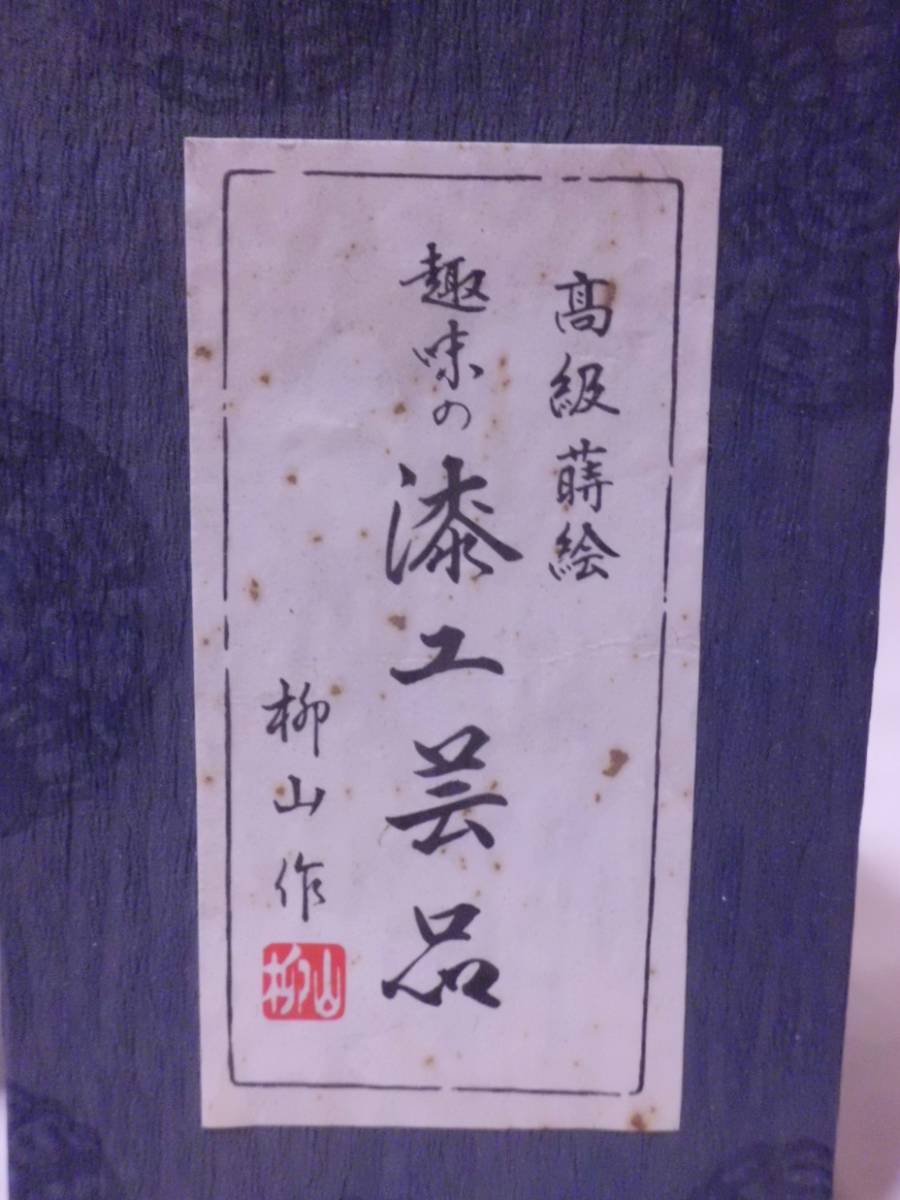 髙級蒔絵
趣味の漆工芸品
柳山作
柳山